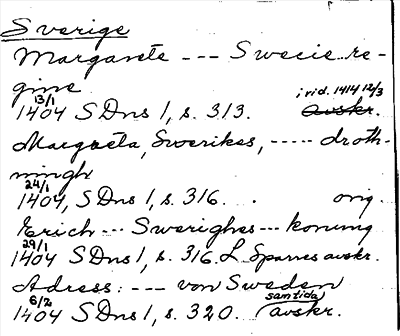 Sverige
Margarete --- Swecie re-
gine
13/1 i vid. 1414 12/3
1404 SDns 1, s. 313. avskr.
Margaeta, Swerikes, ----- droth-
ningh
24/1
1404, SDns 1, s. 316. . orig.
Erich --- Swerighes --- konung
29/1
1404 SDns 1, s. 316. L. Sparres avskr.
Adress: --- von Sweden
6/2 samtida
1404 SDns 1, s. 320. avskr.